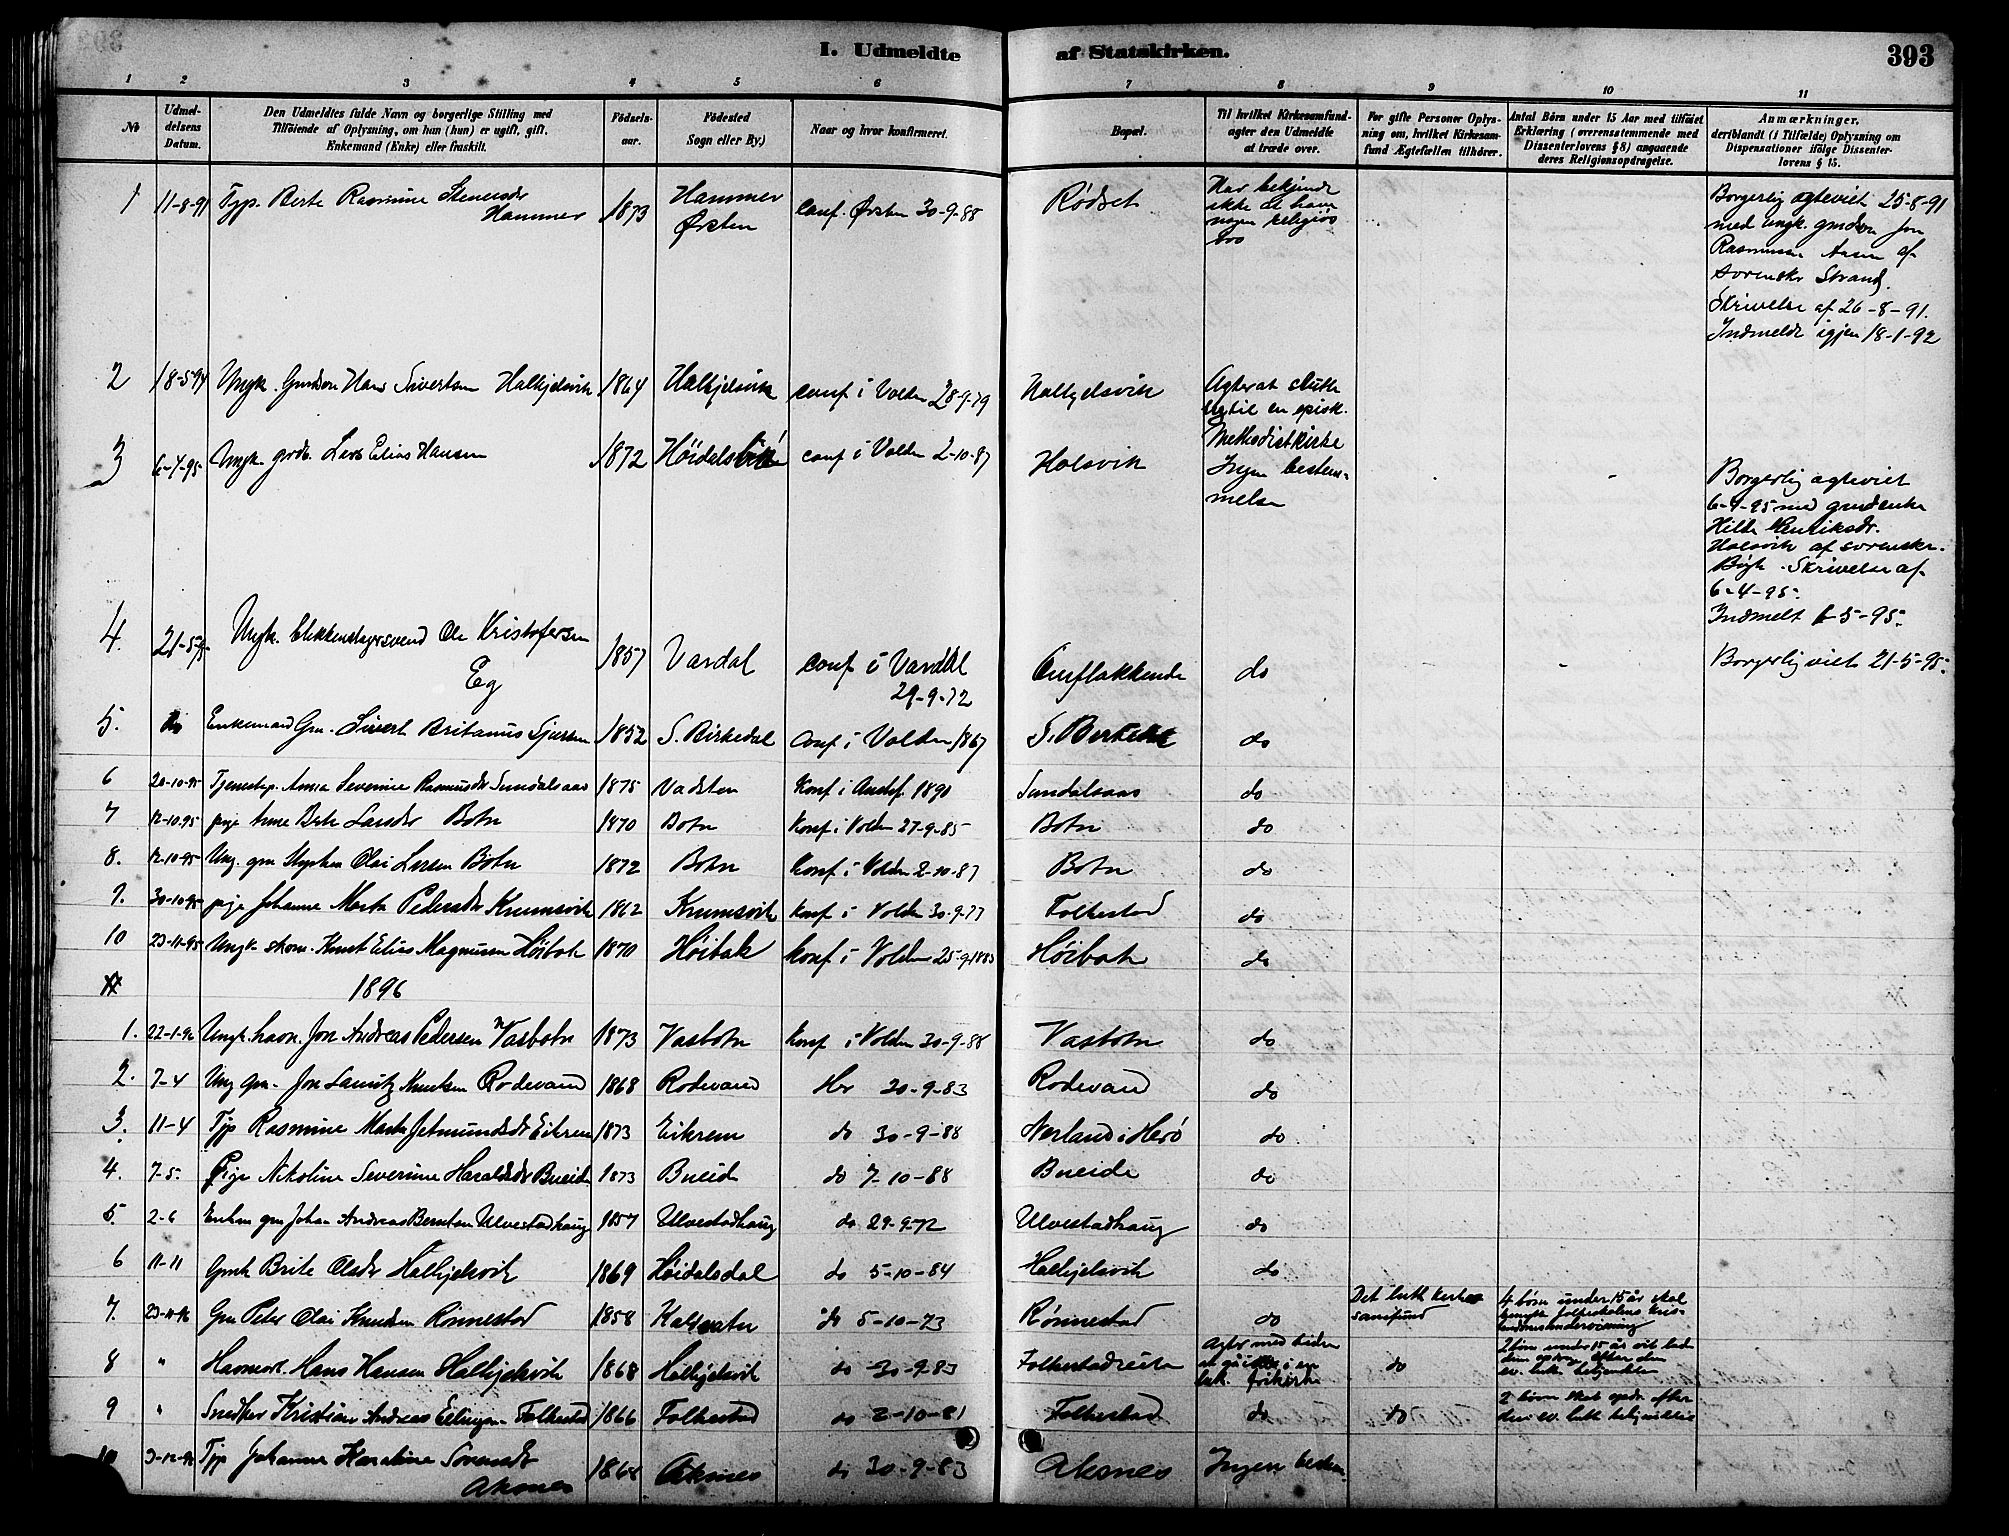 I. Udmeldte af Statskirken.
393
1 2 3 4 5 6 7 8 9 10 11
No
Udmel-
delsens
Datum.
Den Udmeldtes fulde Navn og borgerlige Stilling med
Tilføiende af Oplysning, om han (hun) er ugift, gift,
Enkemand (Enke) eller fraskilt.
Fødsels-
aar.
Fødested
Sogn eller By.)
Naar og hvor konfirmeret.
Bopæl.
Til hvilket Kirkesamfund
agter den Udmeldte
at træde over.
For gifte Personer Oplys-
ning om, hvilket Kirkesam-
fund Ægtefællen tilhører.
Antal Børn under 15 Aar med tilføiet
Erklæring (overensstemmende med
Dissenterlovens § 8) angaaende
deres Religionsopdragelse.
Anmærkninger,
deriblandt (i Tilfælde) Oplysning om
Dispensationer ifølge Dissenter-
lovens § 15.
1 11-8-91 Tjp. Berte Rasmine Stenersdr Hammer 1873 Hammer Ørsten conf. Ørsten 30-9-88 Rødset
Har bekjendt
ikke at have
nogen religiøs
tro
Borgerlig ægteviet 25-8-91
med ungk. gmdsøn Jon
Rasmussen Aasen af
sorenskr Strand.
Skrivelse af 26-8-91.
Indmeldt igjen 18-1-92
2 18-5-94 Ungk. Gmdsøn Hans Sivertsen Halkjelsvik 1864 Halkjelsvik conf i Volden 28-9-79 Halkjelsvik
Agter at slutte
sig til en episk.
Methodistkirke
3 6-4-95 Ungk. grdb. Lars Elias Hansen 1872 Høidalsvik conf i Volden 2-10-87 Holsvik
Ingen bestem-
melse
Borgerlig ægteviet
6-4-95 med gmdenke
Hilda Henriksdr.
Holsvik af sorenskr.
Skrivelse af
6-4-95.
Indmelt 6-5-95.
4. 21-5-95 Ungk. blikkenslagersvend Ole Kristofersen Eg 1857 Vardal conf i Vardal 29-9-72 Omflakkende do Borgerlig viet 21-5-95.
5. do Enkemand Gm. Sivert Britanus Sjursen 1852 S. Birkedal conf i Volden 1867 S. do
6 20-10-95 Tjenestep. Anna Severine Rasmusdr Sundalsaas 1875 Vadsten Konf i 1890 Sundalsaas do
7 12-10-95 pige Anne Berte Larsdr Botn 1870 Botn Konf i Volden 27-9-85 Botn do
8. 12-10-95 Ung. gm Olai Larsen Botn 1872 Botn Konf i Volden 2-10-87 Botn do
9. 30-10-95 pige Johanne Marta Pedersdr Krumsvik 1862 Krumsvik Konf i Volden 30-9-77 Folkestad do
10 23-11-95 Ungk skom. Knut Elias Magnusen Høibak 1870 Høibak Konf i Volden 25-9-1885 Høibak do
1896
1. 22-1-96 Ungk. Jon Andreas Pedersen Vasbotn 1873 Vasbotn Konf i Volden 30-9-88 Vasbotn do
2. 7-4 Ung gm. Jon Lauritz Knutsen Rodevand 1868 Rodevand Her 30-9-83 Rodevand do
3. 11-4 Tjp Rasmine Marta Jetmundsdr Eikrem 1873 Eikrem do 30-9-88 Nerland i Herø do
4. 7-5. Pige Nikoline Severine Haraldsdr Bueide 1873 Bueid do 7-10-88 Bueide do
5. 2-6 Enkm gm Johan Andreas Berntsen Ulvestadhaug 1857 Ulvestadhaug do 29-9-72 Ulvestadhaug do
6 11-11 Gmk Brite Olsdr Halkjelsvik 1869 Høidalsdal do 5-10-84 Halkjelsvik do
7. 23-11-96 Gm Peter Olai Knudsen Rønnestad 1858 Kalvatn do 5-10-73 Rønnestad do
Det luth kirke
samfund
4 børn under 15 år skal
benytte folkeskolens kris-
tendomsundervisning
8 " Hans Hansen Halkjelsvik 1868 Halkjelsvik do 30-9-83
Agter med tiden
at gå i en
luk. frikirke
do
2 børn under 15 år vil lade
dem opdrage efter den
ev. luth. bekjendelse
9 " Snedker Kristian Andreas Folkestad 1866 Folkestad do 2-10-81 Folkestad do do
2 børn skal opdr. efter
den ev. luth bekjendelse
10 3-12-96 Tjp Johanne Karoline Sørensdr Aksnes 1868 Aksnes do 30-9-83 Aksnes Ingen bestem.